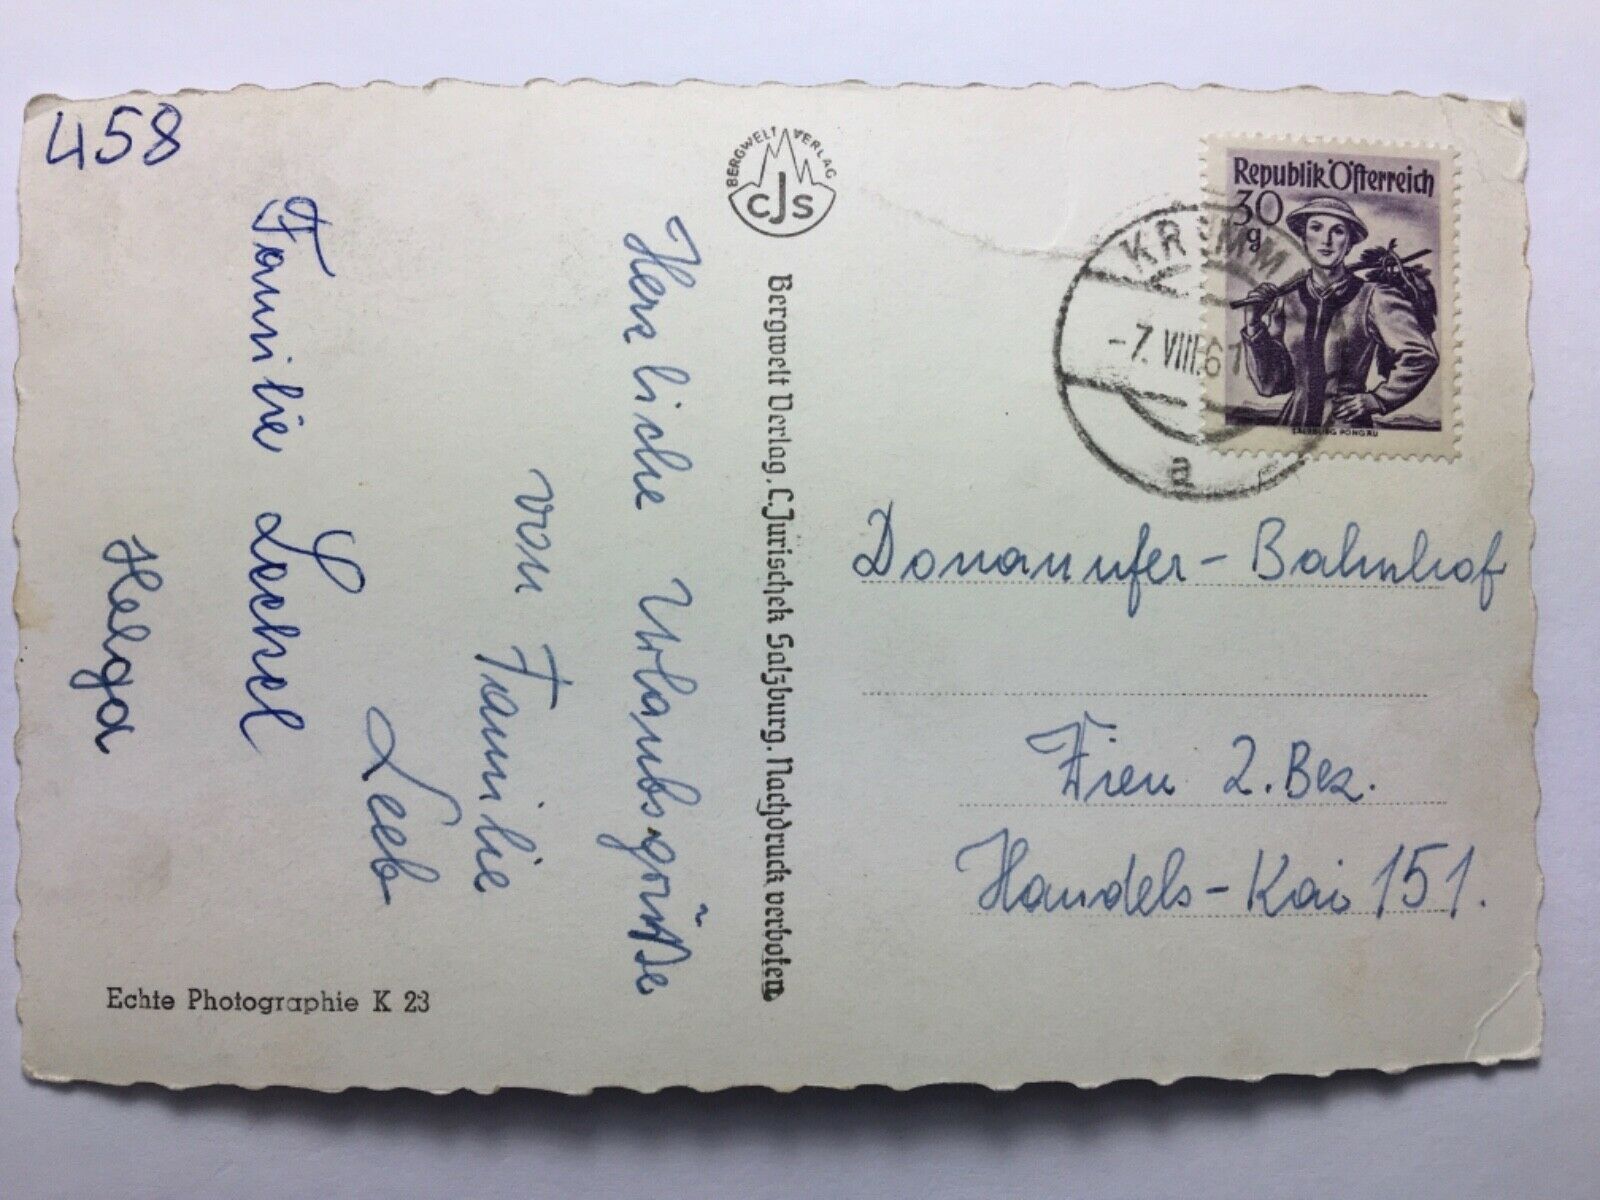 458
Herzliche Urlaubsgrüße
von Familie
Leeb
Familie
Helga
Echte Photographie K 23
BERGWELT VERLAG
CJS
Bergwelt Verlag, C. Jurischek Salzburg. Nachdruck verboten
Republik Österreich
30
g
SALZBURG PONGAU
KRIMML
-7. VIII. 61
a
Donauufer-Bahnhof
Wien 2. Bez.
Handels-Kai 151.